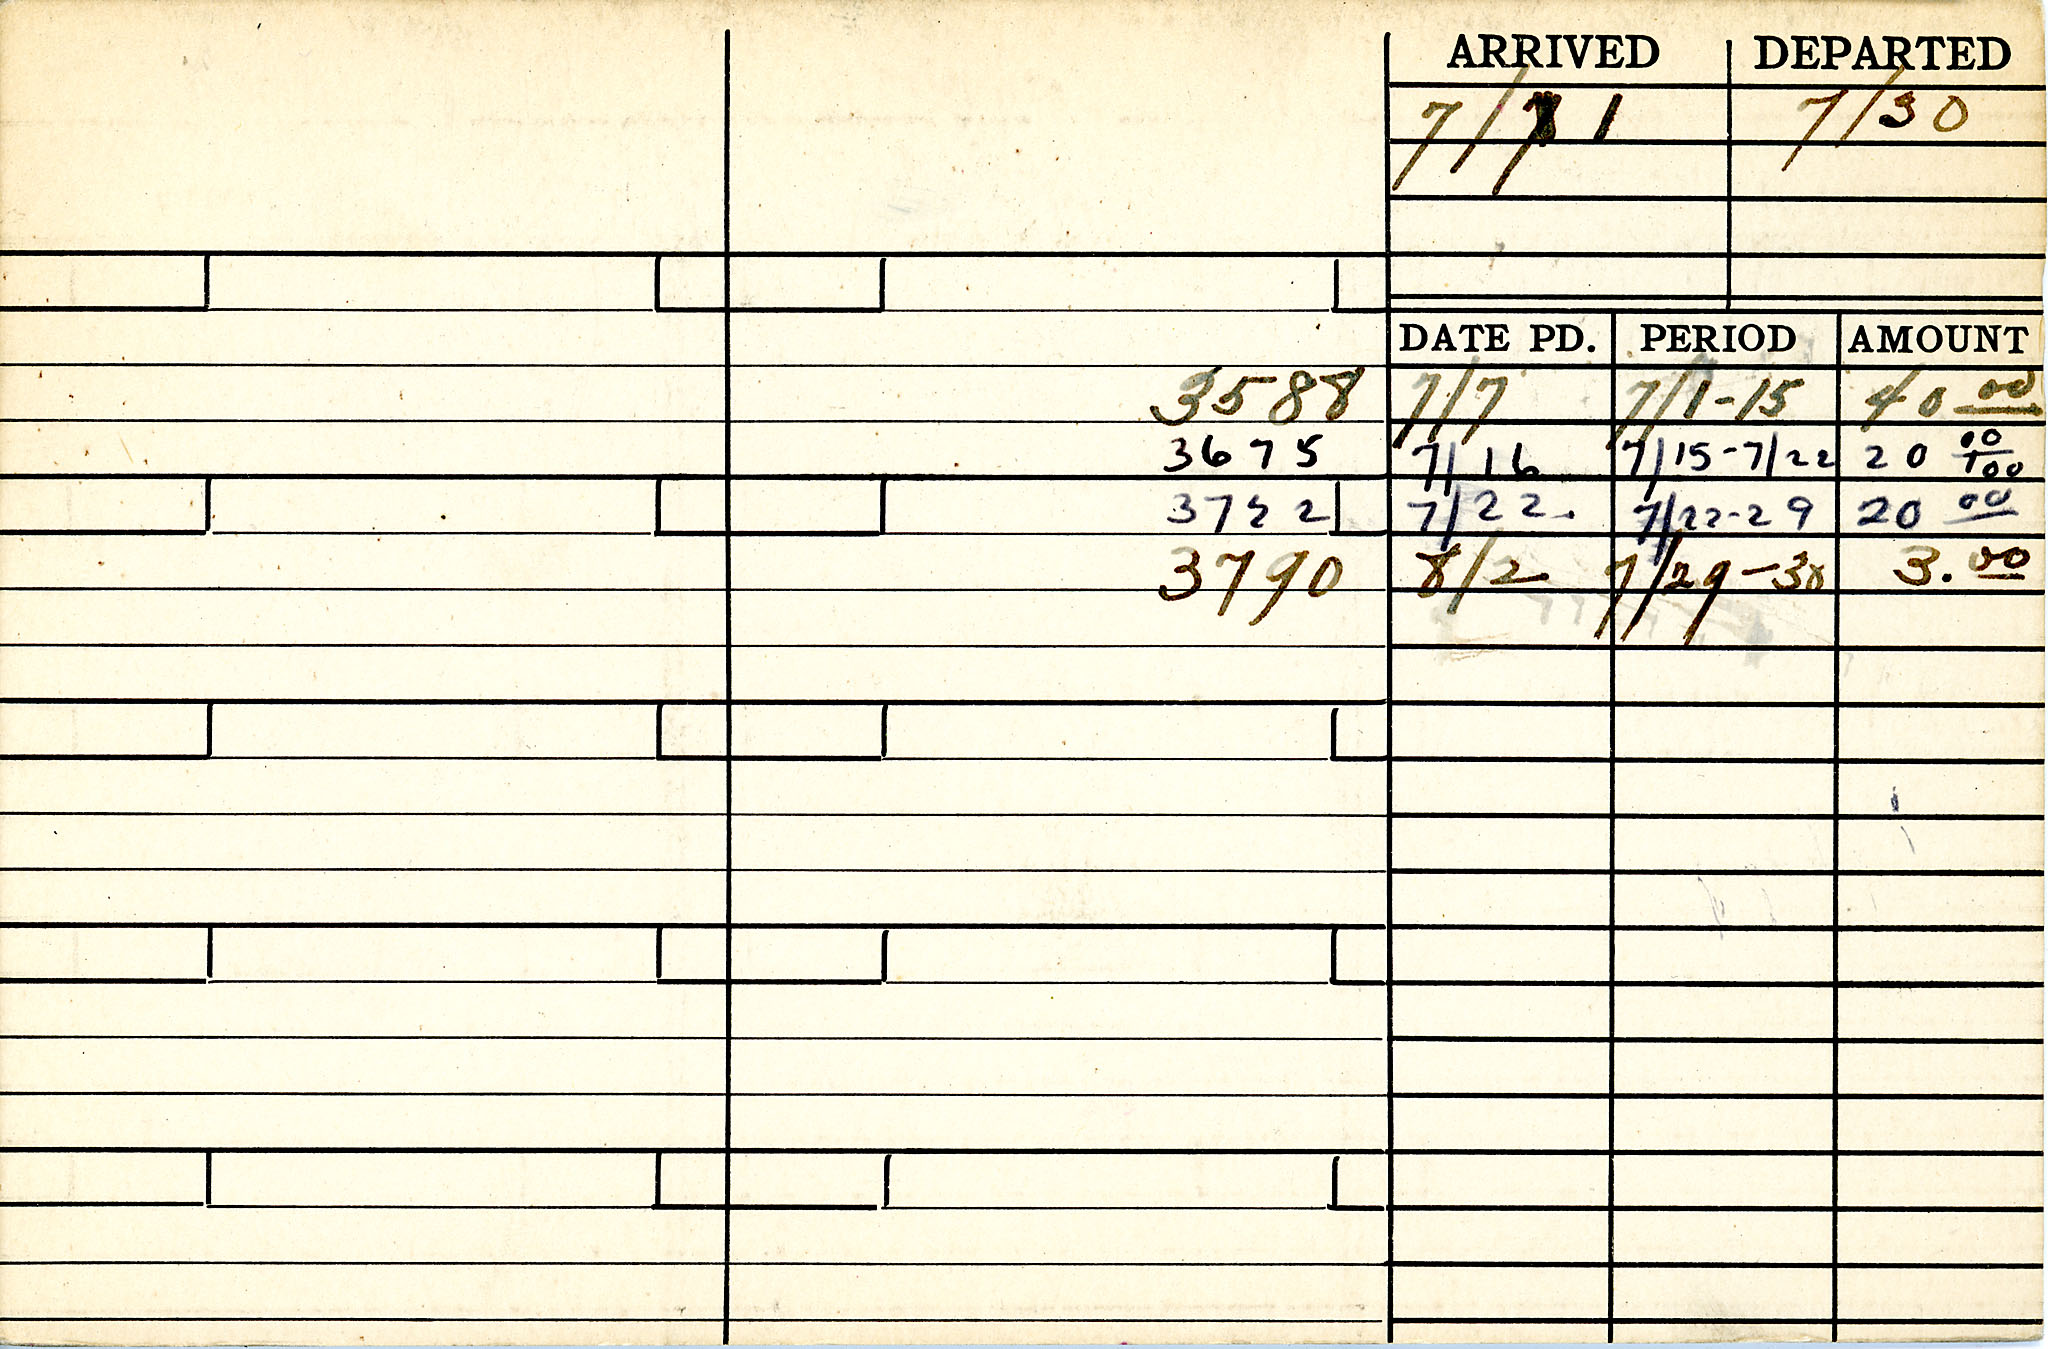 ARRIVED DEPARTED
7/1 7/30
DATE PD. PERIOD AMOUNT
3588 7/7 7/1-15 40 00
3675 7/16 7/15-7/22 20 00/100
3722 7/22. 7/22-29 20 00
3790 8/2 7/29-30 3.00